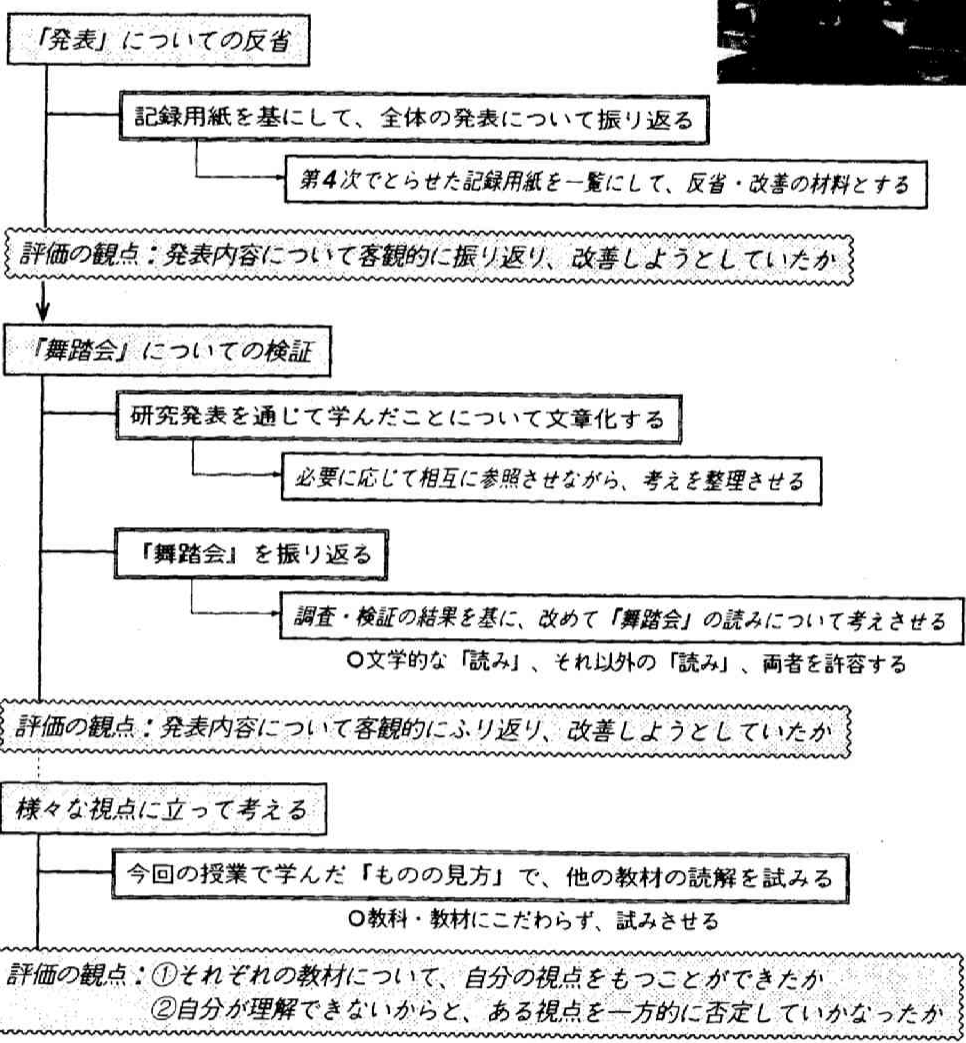 「発表」についての反省
記録用紙を基にして、全体の発表について振り返る
第4次でとらせた記録用紙を一覧にして、反省・改善の材料とする
評価の観点：発表内容について客観的に振り返り、改善しようとしていたか
『舞踏会』についての検証
研究発表を通じて学んだことについて文章化する
必要に応じて相互に参照させながら、考えを整理させる
『舞踏会』を振り返る
調査・検証の結果を基に、改めて『舞踏会』の読みについて考えさせる
○文学的な「読み」、それ以外の「読み」、両者を許容する
評価の観点：発表内容について客観的にふり返り、改善しようとしていたか
様々な視点に立って考える
今回の授業で学んだ『ものの見方』で、他の教材の読解を試みる
○教科・教材にこだわらず、試みさせる
評価の観点：①それぞれの教材について、自分の視点をもつことができたか
②自分が理解できないからと、ある視点を一方的に否定していかなったか